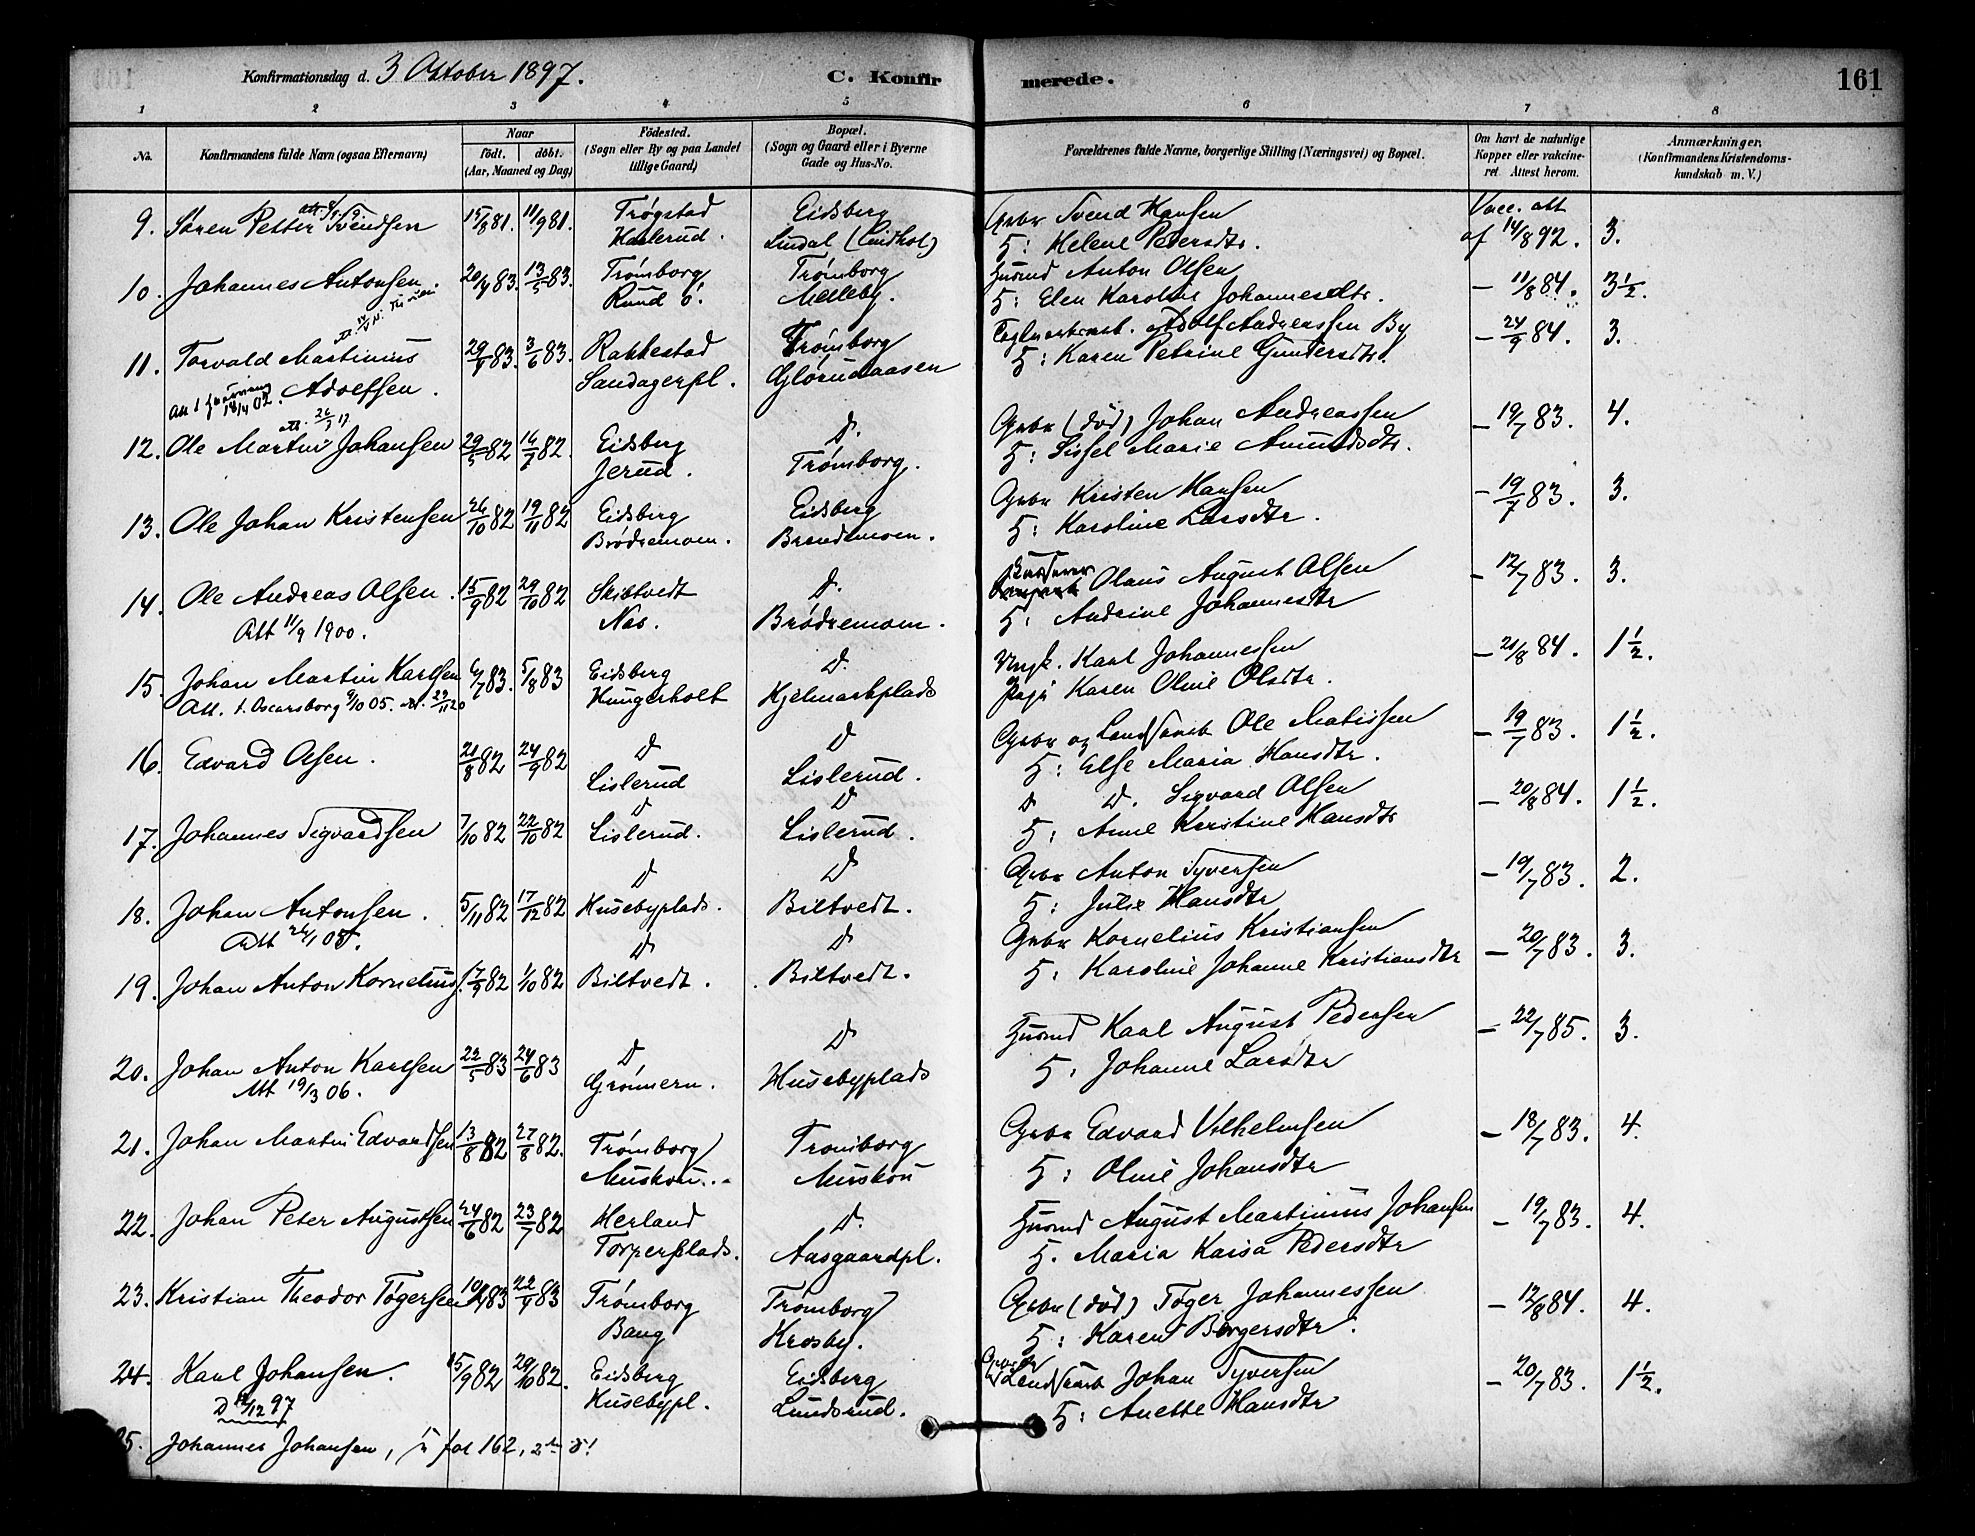 Konfirmationsdag d. 3 Oktober 1897.
C. Konfirmerede.
161
1 2 3 4 5 6 7 8
No.
Konfirmandens fulde Navn (ogsaa Efternavn)
Naar
født. døbt.
(Aar, Maaned og Dag)
Fødested.
(Sogn eller By og paa Landet
tillige Gaard)
Bopæl.
(Sogn og Gaard eller i Byerne
Gade og Hus-No.
Forældrenes fulde Navne, borgerlige Stilling (Næringsvei) og Bopæl.
Om havt de naturlige
Kopper eller vakcine-
ret. Attest herom.
Anmærkninger.
(Konfirmandens Kristendoms-
kundskab m. V.)
9. Søren Petter Svendsen 15/8 81. 11/9 81. Trøgstad Eidsberg Gbr Svend Hansen Vacc. att
Haslerud. Lindal (Lindhol) H: Helene Pedersdtr. af 14/8 92. 3.
10. Johannes Antonsen. 20/4 83. 13/5 83. Trømborg Trømborg Husmd Anton Olsen – 11/8 84. 3½.
Ruud ø. Melleby. H: Elen Karoline Johannesdtr.
11. Torvald Martinius 29/4 83. 3/6 83. Rakkestad Trømborg Adolf Andreassen By – 24/9 84. 3.
Adolfsen. Sandagerpl. Glørudaasen H: Karen Petrine Guntersdtr.
12. Ole Martin Johansen 29/5 82 16/7 82. Eidsberg D. Gbr (død) Johan Andreassen – 19/7 83. 4.
Jerud. Trømborg. H: Sissel Marie Amundsdtr.
13. Ole Johan Kristensen 26/10 82 19/11 82 Eidsberg Eidsberg Gbr Kristen Hansen – 19/7 83. 3.
Brødremoen. Brendemoen. H: Karoline Larsdtr.
14. Ole Andreas Olsen. 15/9 82 29/10 82 Skibtvedt D. Olaus August Olsen – 12/7 83. 3.
Att 11/9 1900. Nes. Brødremoen. H: Andrine Johannesdtr
15. Johan Martin Karlsen 6/7 83. 5/8 83 Eidsberg D. Ungk. Karl Johannessen – 21/8 84. 1½.
Att. t. Oscarsborg 9/10 05. Att. 29/11 20 Hungerholt Kjelmarkplads Pige Karen Oline Olsdtr.
16. Edvard Olsen. 21/8 82 24/9 82 D D Gbr og Landsmb Ole Matissen – 19/7 83. 1½.
Lislerud Lislerud. H: Else Maria Hansdtr.
17. Johannes Sigvardsen 7/10 82 22/10 82 D D D D. Sigvard Olsen – 20/8 84. 1½.
Lislerud. Lislerud. H: Anne Kristine Hansdtr
18. Johan Antonsen. 5/11 82 17/12 82 D D Gbr Anton Syversen – 19/7 83. 2.
Husebyplads. Biltvedt. H: Julie Hansdtr
19. Johan Anton Kornelius. 17/9 82 1/10 82 D D Gbr Kornelius Kristiansen – 20/7 83. 3.
Biltvedt. Biltvedt. H: Karoline Johanne Kristiansdtr
20. Johan Anton Karlsen 22/5 83 24/6 83 D D Husmd Karl August Pedersen – 22/7 85. 3.
Att 19/3 06. Grønnern. Husebyplads H. Johanne Larsdtr
21. Johan Martin Edvardsen 13/8 82 27/8 82. Trømborg Trømborg Gbr Edvard Vilhelmsen – 18/7 83. 4.
Muskou. Muskou H: Oline Johansdtr
22. Johan Peter Augustsen 24/6 82 23/7 82 Herland D. Husmd August Martinius Johansen – 19/7 83. 4.
Torperplads. Aasgaardpl. H. Maria Kaisa Pedersdtr
23. Kristian Theodor Tøgersen 83 22/4 83 Trømborg Trømborg Gbr (død) Tøger Johannessen – 12/8 84. 4.
Bang Krosby. H: Karen Børgersdtr.
24. Karl Johansen. 15/9 82 29/10 82. Eidsberg Eidsberg Johan Syversen – 20/7 83. 1½.
D 12/12 97 Husebypl. Lundsrud. H: Anette Hansdtr
25. Johannes Johansen, fol 162,